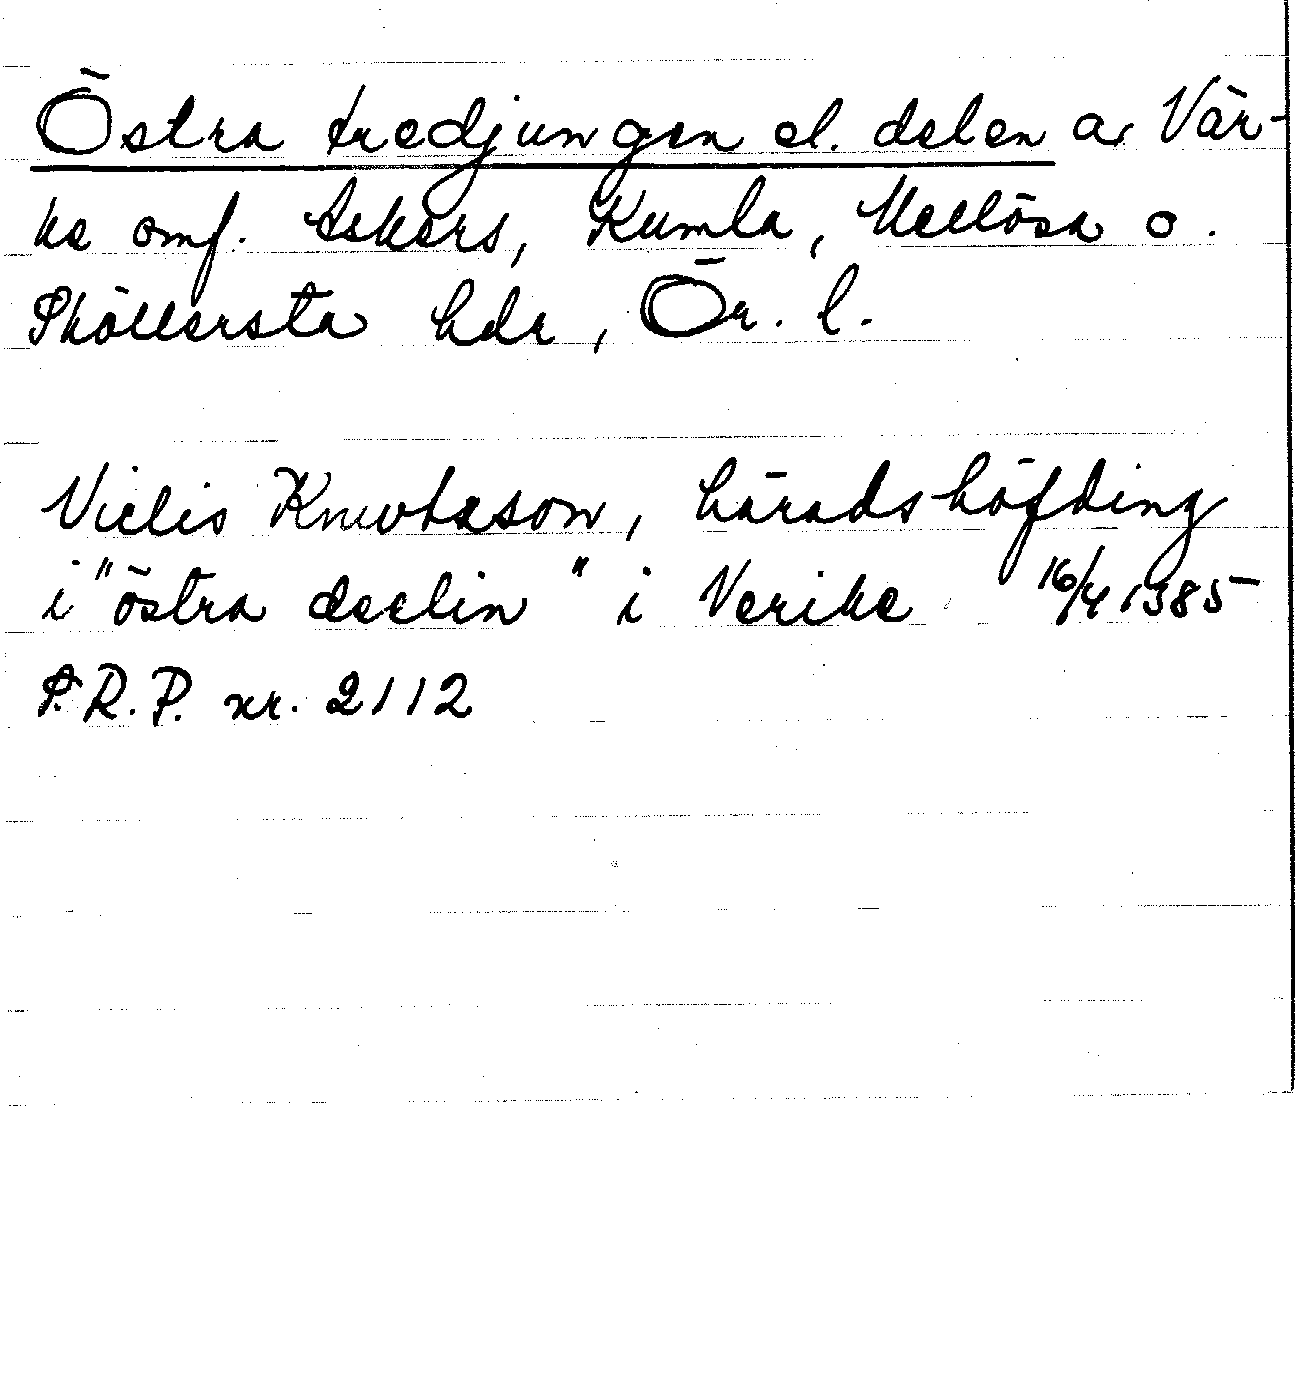 Östra tredjungen el. delen av När-
ke omf. Askers, Kumla, Mellösa o.
Sköllersta hdr, Ör. l.
Nielis Knwtzson, häradshöfding
i "östra deelin" i Nerike 16/4 1385
S.R.P. nr. 2112